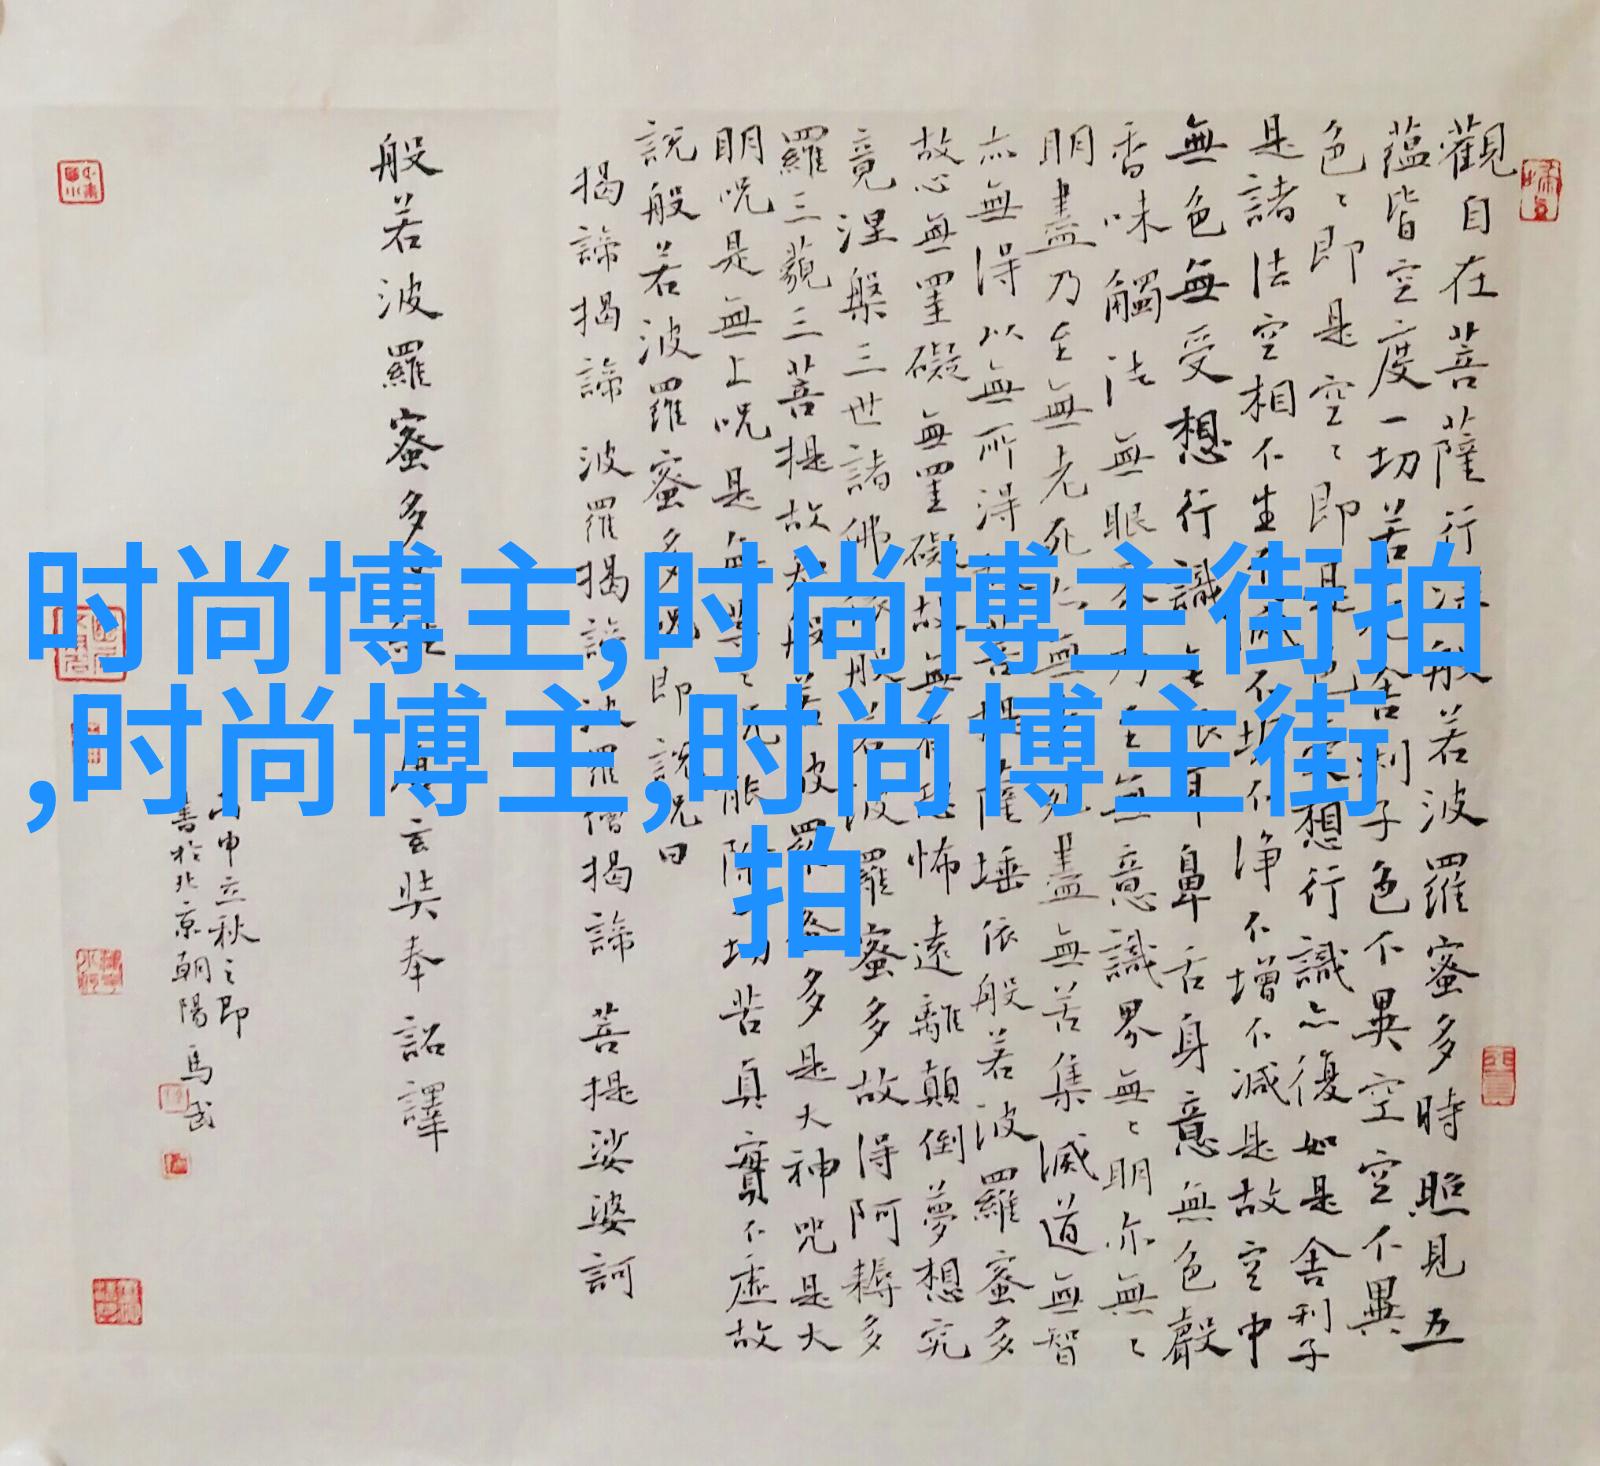 觀自在菩薩行深般若波羅蜜多時照見五
蘊皆空度一切苦厄舍利子色不異空空不異
色々即是空々即是色受想行識亦復如是舍利子
是諸法空相不生不滅不垢不淨不增不減是故空中
無色無受想行識無眼耳鼻舌身意無色聲
香味觸法無眼界乃至無意識界無々明亦無々
明盡乃至無老死亦無老死盡無苦集滅道無智
亦無得以無所得故菩提薩埵依般若波羅蜜多
故心無罣礙無罣礙故無有恐怖遠離顛倒夢想究
竟涅槃三世諸佛依般若波羅蜜多故得阿耨多
羅三藐三菩提故知般若波羅蜜多是大神咒是大
明咒是無上咒是無等々咒能除一切苦真實不虛故
說般若波羅蜜多咒即說咒曰
揭諦揭諦 波羅揭諦 波羅僧揭諦 菩提娑婆訶
般若波羅蜜多心經 唐玄奘奉詔譯
丙申立秋之即
書於北京朝陽馬武
时尚博主,时尚博主街拍
,时尚博主,时尚博主街
拍